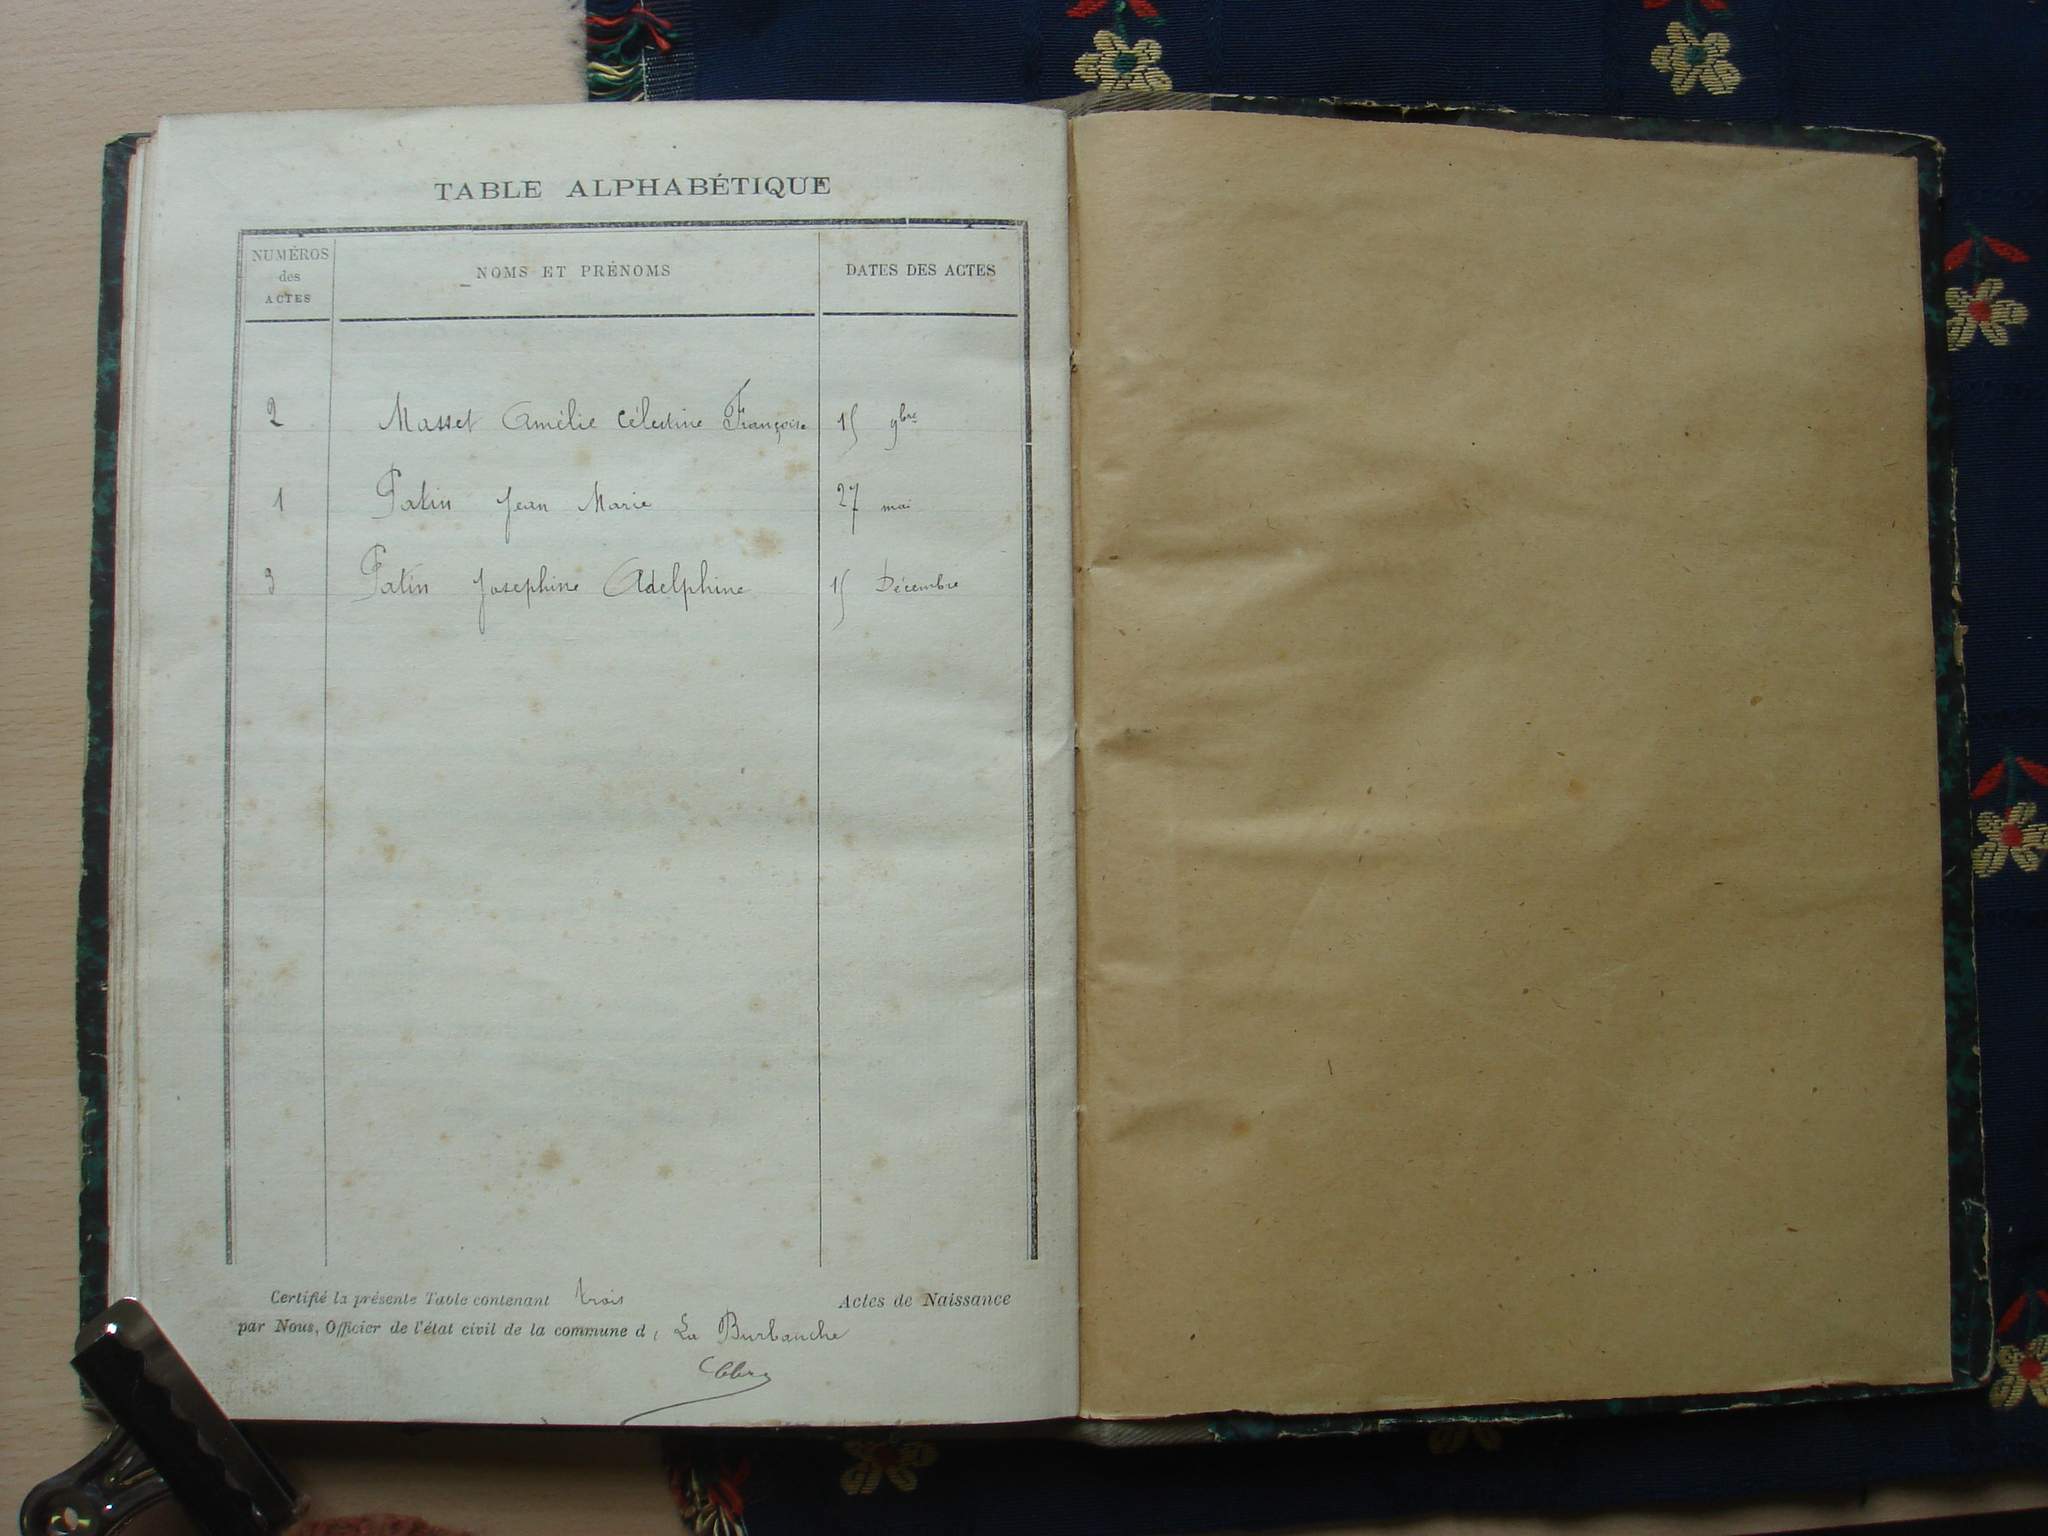 TABLE ALPHABÉTIQUE
NUMÉROS des ACTES
NOMS ET PRÉNOMS
DATES DES ACTES
2 Masset Amélie Célestine Françoise 15 9bre
1 Patin Jean Marie 27 mai
3 Patin Joséphine Adelphine 15 Décembre
Certifié la présente Table contenant trois Actes de Naissance
par Nous, Officier de l'état civil de la commune d, La Burbanche